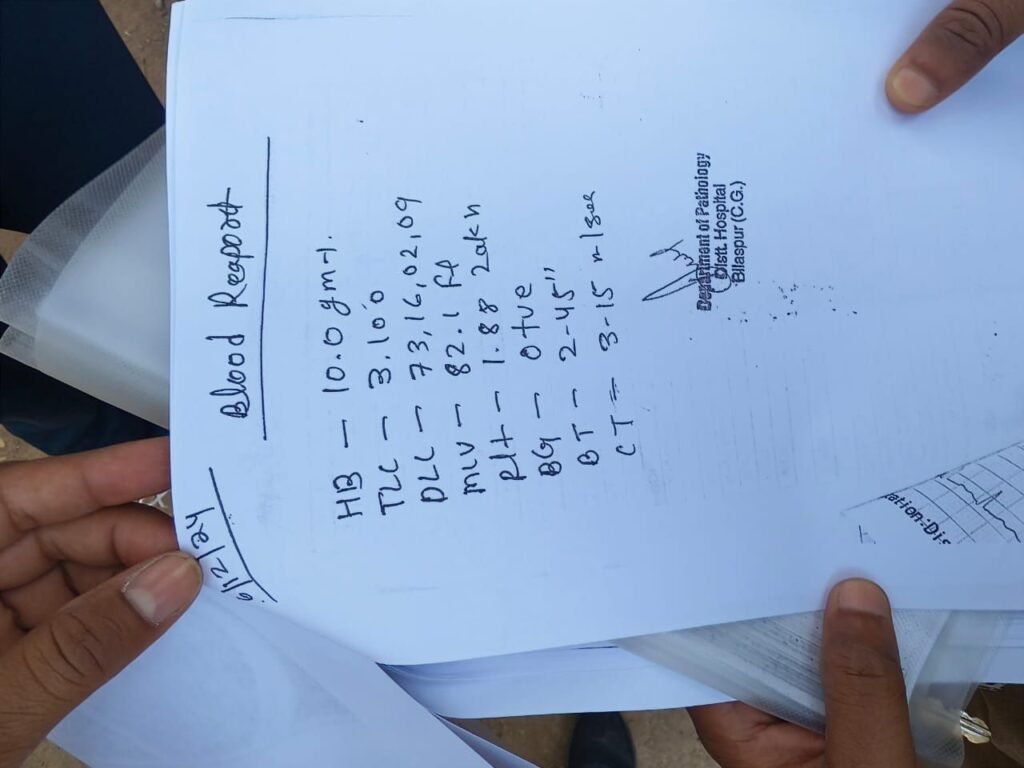 6/12/24
Blood Reaport
HB - 10.0 gm-1.
TLC - 3.100
DLC - 73,16,02,09
MCV - 82.1 fl
Plt - 1.88 Lakh
BG - O+ve
BT - 2-45"
CT = 3-15
Department of Pathology
Distt. Hospital
Bilaspur (C.G.)
ation-Dis